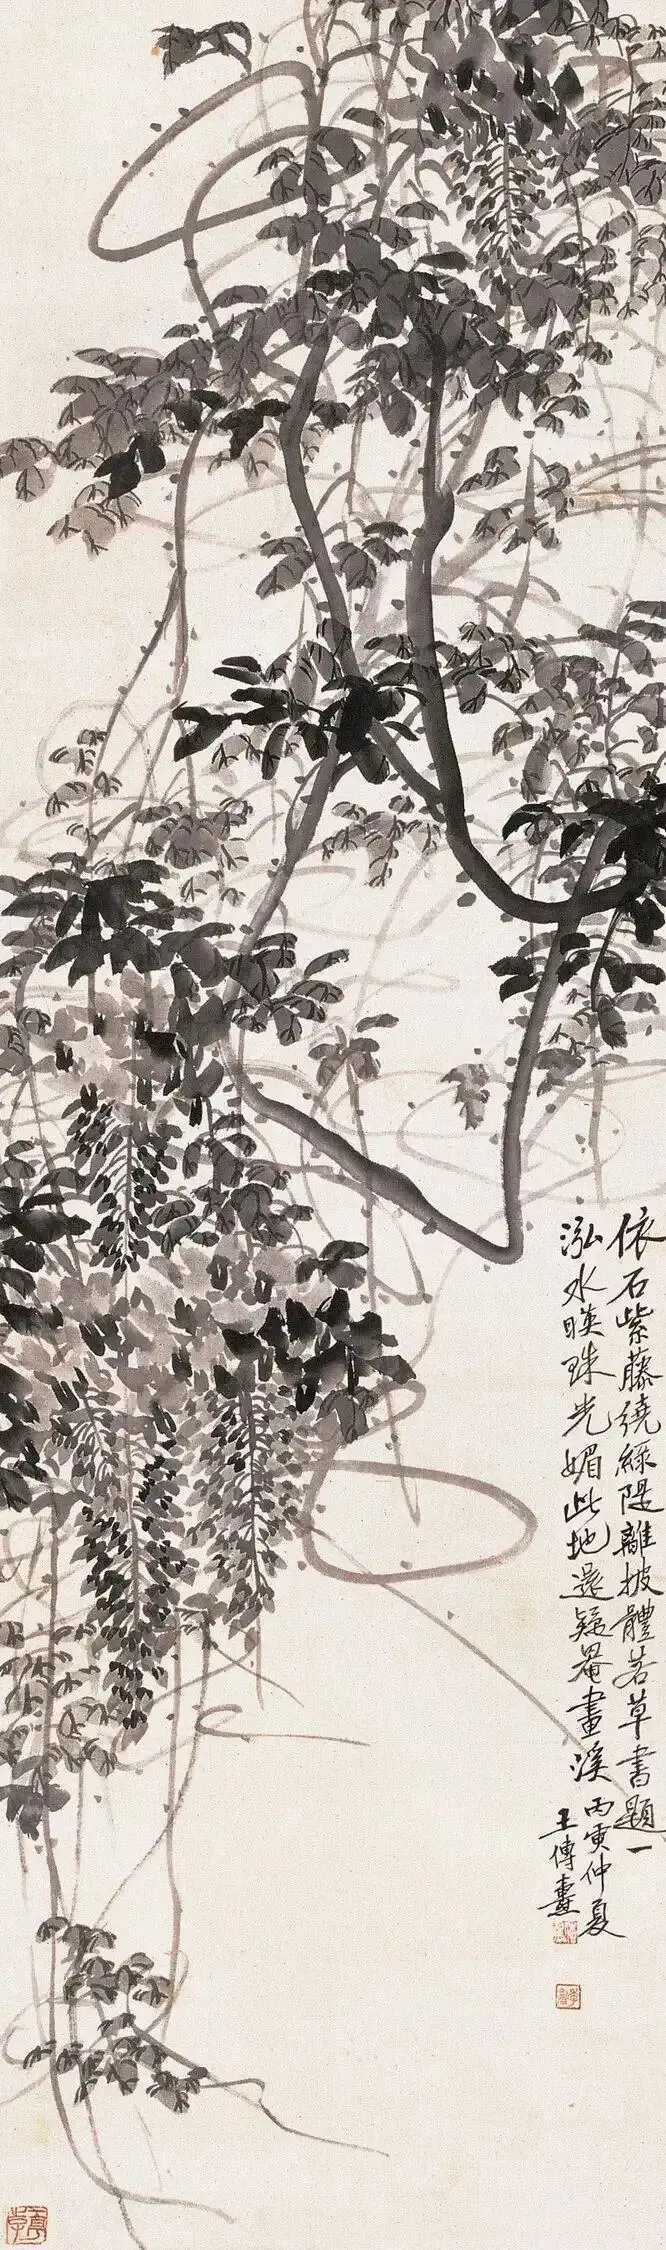 依石紫藤繞綠隄離披體若草書題一
泓水暎珠光媚此地還疑罨畫溪丙寅仲夏
王傳燾